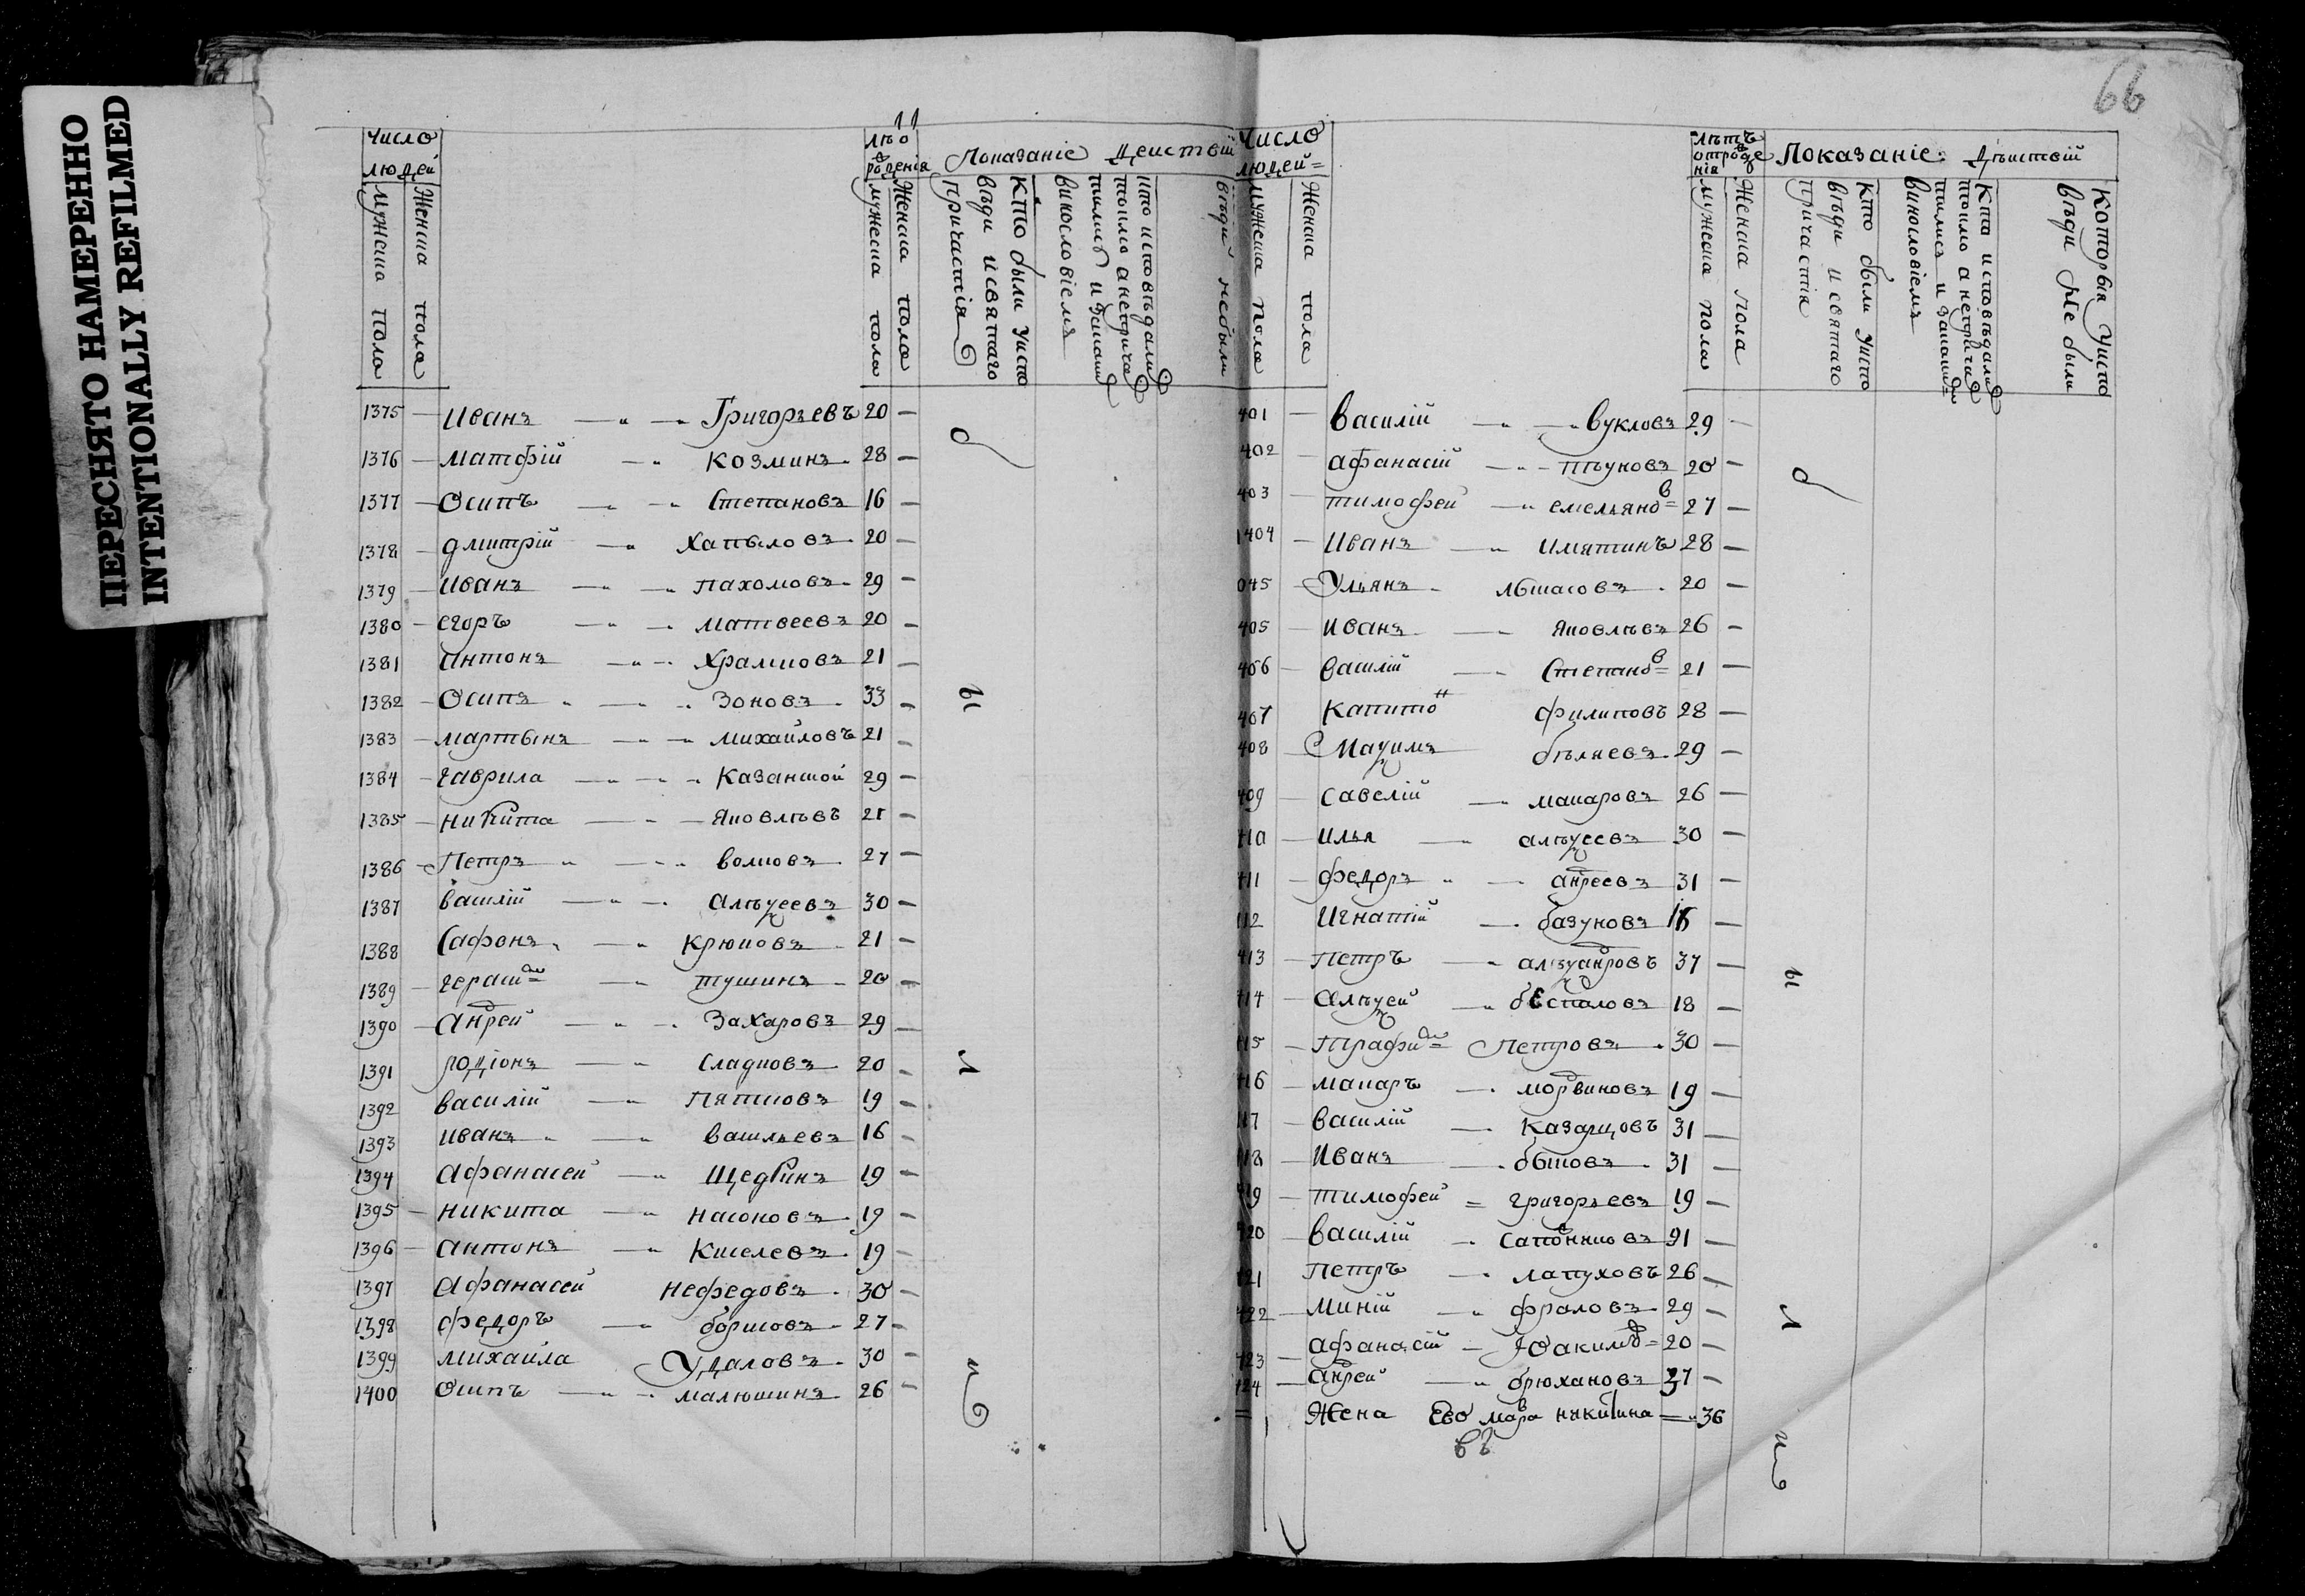 ПЕРЕСНЯТО НАМЕРЕННО
INTENTIONALLY REFILMED
66
11
Число людей
мужеска пола
женска пола
рожденія
мужеска пола
женска пола
Показаніе Деиствій
кто были уиспо
вѣди исвятаго
причастія
кто исповѣдалис
толко анепричас
тилис и закаким
винословіемъ
вѣди небыли
1375 — Иванъ — Григорьевъ 20 —
1376 — Матфій — Козминъ 28 —
1377 — Осипъ — Степановъ 16 —
1378 — Дмитрій — Хапыловъ 20 —
1379 — Иванъ — Пахомовъ 29 —
1380 — Егоръ — Матвеевъ 20 —
1381 Антонъ — Храмковъ 21 —
1382 — Осипъ — Зоновъ 33 —
1383 — Мартынъ — Михайловъ 21 —
1384 — Гаврила — Казанкой 29 —
1385 — Никита — Яковлѣвъ 21 —
1386 — Петръ — Волковъ 27 —
1387 Василій — Алѣксеевъ 30 —
1388 Сафонъ — Крюковъ 21 —
1389 — Герасим — Тушинъ 20 —
1390 — Андрей — Захаровъ 29 —
1391 Родіонъ — Сладковъ 20 —
1392 Василій — Пятковъ 19 —
1393 Иванъ — Васильевъ 16 —
1394 Афанасей — Щедринъ 19 —
1395 — Никита — Насоновъ 19 —
1396 — Антонъ — Киселевъ 19 —
1397 Афанасей Нефедовъ 30 —
1398 Федоръ — Борисовъ 27 —
1399 Михаила Удаловъ 30 —
1400 Осипъ — Малюшинъ 26 —
б
ы
л
и
Число людей
мужеска пола
Женска пола
лѣтъ отрожде нія
мужеска пола
Женска пола
Показаніе Дѣиствій
кто были уиспо
вѣди и святаго
причастія
Кто исповѣдалис
толко анепричас
тилис и закаким
винословіемъ
Которыя уиспо
вѣди Не были
401 — Василій — Вукловъ 29 —
402 — Афанасій — Птуховъ 20 —
403 — Тимофей — Емельянов 27 —
1404 — Иванъ — 28 —
045 — Ульянъ 20 —
405 — Иванъ — Яковлѣвъ 26 —
406 — Василій — Степанов 21 —
407 Капитон Филиповъ 28 —
408 — Маѯимъ бѣляевъ 29 —
409 — Савелій — Макаровъ 26 —
410 — Илья — Алѣксеевъ 30 —
411 — Федоръ — Андреевъ 31 —
412 Игнатій — базуновъ —
413 — Петръ — Алѣксандровъ 37 —
414 — Алѣксей — беспаловъ 18 —
415 — Трафим Петровъ 30 —
416 — Макаръ — Мордвиновъ 19 —
417 — Василій — Казанцовъ 31 —
418 — Иванъ — быковъ 31 —
419 — Тимофей = Григорьевъ 19 —
420 — Василій — Сапожниковъ 91 —
421 Петръ — Лапуховъ 26 —
422 — Миній — Фраловъ 29 —
423 — Афанасій — Іоакимов 20 —
424 — Андрей — брюхановъ 37 —
= Жена Ево Мавра Никитина = 36
б
ы
л
и